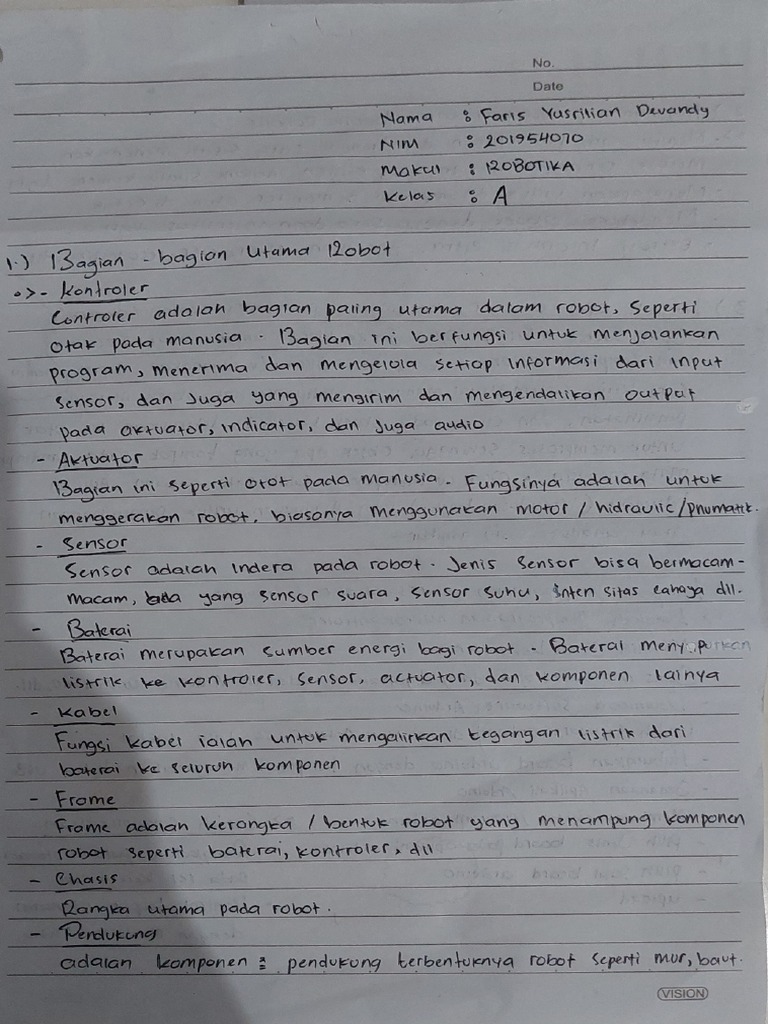 No.
Date
Nama : Faris Yusrilian Devandy
NIM : 201954070
Makul : ROBOTIKA
Kelas : A
1.) Bagian - bagian Utama Robot
=> - Kontroler
Controler adalah bagian paling utama dalam robot, Seperti
otak pada manusia. Bagian ini berfungsi untuk menjalankan
program, menerima dan mengelola setiap informasi dari input
sensor, dan Juga yang mengirim dan mengendalikan output
pada aktuator, indicator, dan Juga audio
- Aktuator
Bagian ini seperti otot pada manusia. Fungsinya adalah untuk
menggerakan robot, biasanya menggunakan motor / hidraulic / pnumatik.
- Sensor
Sensor adalah Indera pada robot. Jenis Sensor bisa bermacam-
macam, ada yang sensor suara, sensor suhu, inten sitas cahaya dll.
- Baterai
Baterai merupakan sumber energi bagi robot. Baterai menyupurkan
listrik ke kontroler, sensor, actuator, dan komponen lainya
- Kabel
Fungsi kabel ialah untuk mengalirkan tegangan listrik dari
baterai ke seluruh komponen
- Frame
Frame adalah kerangka / bentuk robot yang menampung komponen
robot seperti baterai, kontroler, dll
- Chasis
Rangka utama pada robot.
- Pendukung
adalah komponen = pendukung terbentuknya robot seperti mur, baut.
VISION